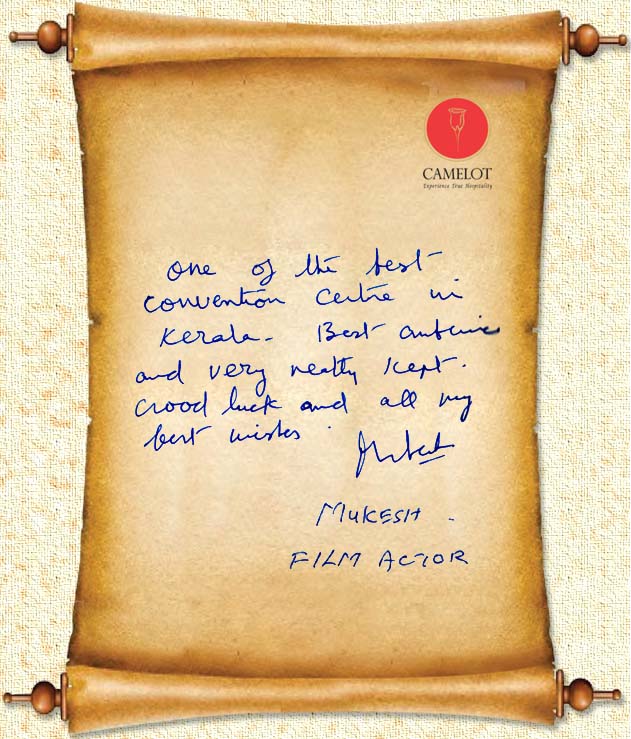 CAMELOT
Experience True Hospitality
One of the best
convention centre in
Kerala. Best ambience
and very neatly kept.
Good luck and all my
best wishes.
MUKESH.
FILM ACTOR